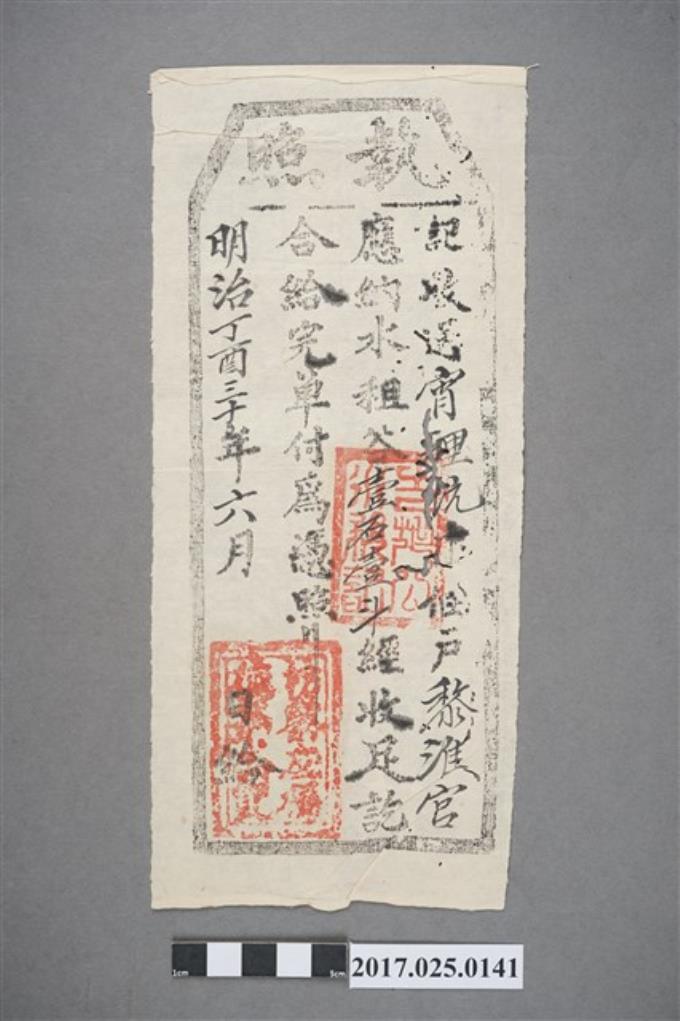 執照
記收過宵裡坑庄佃戶黎淮官
應納水租谷壹石壹斗經收足訖
合給完单付為憑照
明治丁酉三十年六月 日給
1cm 5cm
2017.025.0141